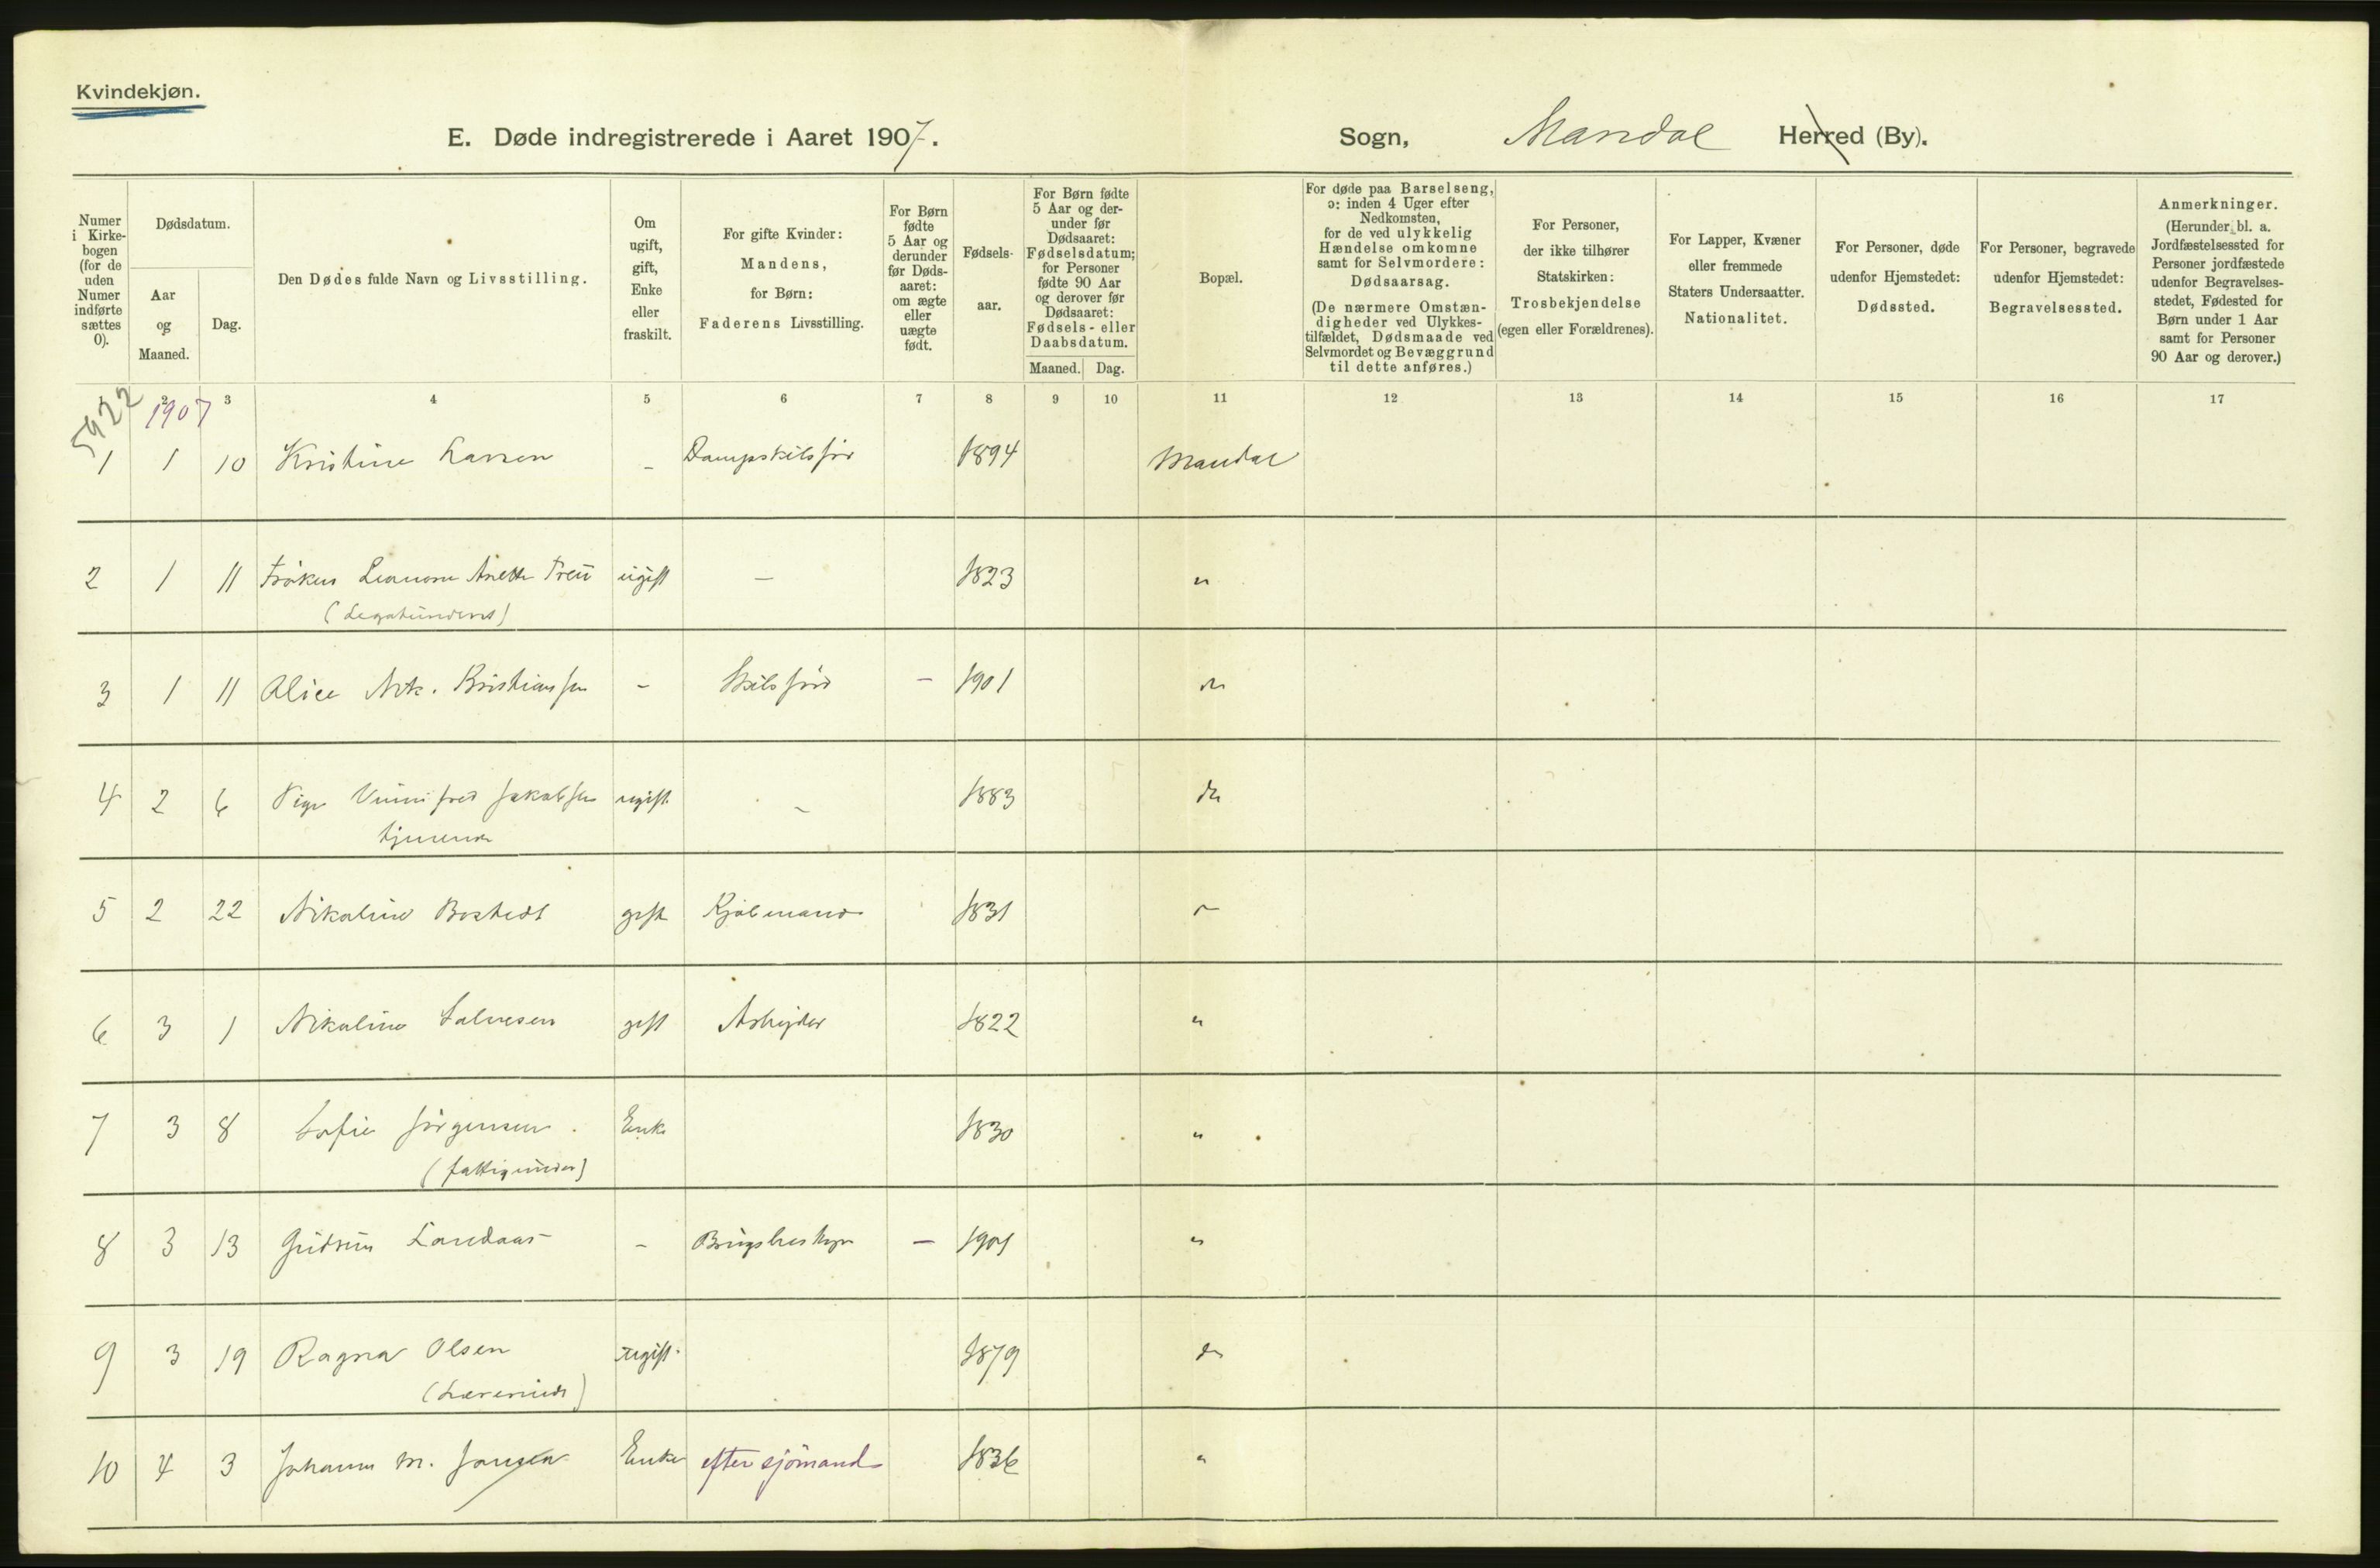 Kvindekjøn.
E. Døde indregistrerede i Aaret 1907.
Sogn, Mandal Herred (By).
Numer
i Kirke-
bogen
(for de
uden
Numer
indførte
sættes
0).
Dødsdatum.
Aar
og
Maaned.
Dag.
Den Dødes fulde Navn og Livsstilling.
Om
ugift,
gift,
Enke
eller
fraskilt.
For gifte Kvinder:
Mandens,
for Børn:
Faderens Livsstilling.
For Børn
fødte
5 Aar og
derunder
før Døds-
aaret:
om ægte
eller
uægte
født.
Fødsels-
aar.
For Børn fødte
5 Aar og der-
under før
Dødsaaret:
Fødselsdatum;
for Personer
fødte 90 Aar
og derover før
Dødsaaret:
Fødsels- eller
Daabsdatum.
Maaned. Dag.
Bopæl.
For døde paa Barselseng,
ɔ: inden 4 Uger efter
Nedkomsten,
for de ved ulykkelig
Hændelse omkomne
samt for Selvmordere:
Dødsaarsag.
(De nærmere Omstæn-
digheder ved Ulykkes-
tilfældet, Dødsmaade ved
Selvmordet og Bevæggrund
til dette anføres.)
For Personer,
der ikke tilhører
Statskirken:
Trosbekjendelse
(egen eller Forældrenes).
For Lapper, Kvæner
eller fremmede
Staters Undersaatter.
Nationalitet.
For Personer, døde
udenfor Hjemstedet:
Dødssted.
For Personer, begravede
udenfor Hjemstedet:
Begravelsessted.
Anmerkninger.
(Herunder bl. a.
Jordfæstelsessted for
Personer jordfæstede
udenfor Begravelses-
stedet, Fødested for
Børn under 1 Aar
samt for Personer
90 Aar og derover.)
1 2 3 4 5 6 7 8 9 10 11 12 13 14 15 16 17
5422 1907
1 1 10 Kristine Larsen - 1894 Mandal
2 1 11 Frøken Anette ugift - 1823 "
3 1 11 Alice Kristiansen - - 1901 do
4 2 6 Pige Jakobsen ugift - 1883 do
tjenende
5 2 22 Nikoline Bostedt gift Kjøbmand 1831
6 3 1 Nikoline Salvesen gift Arbeider 1822 "
7 3 8 Sofie Jörgensen. Enke 1830 "
8 3 13 Gudrun Landaas - - "
9 3 19 Ragna Olsen ugift. 1879 do
10 4 3 M. Enke efter sjömand 1836 "